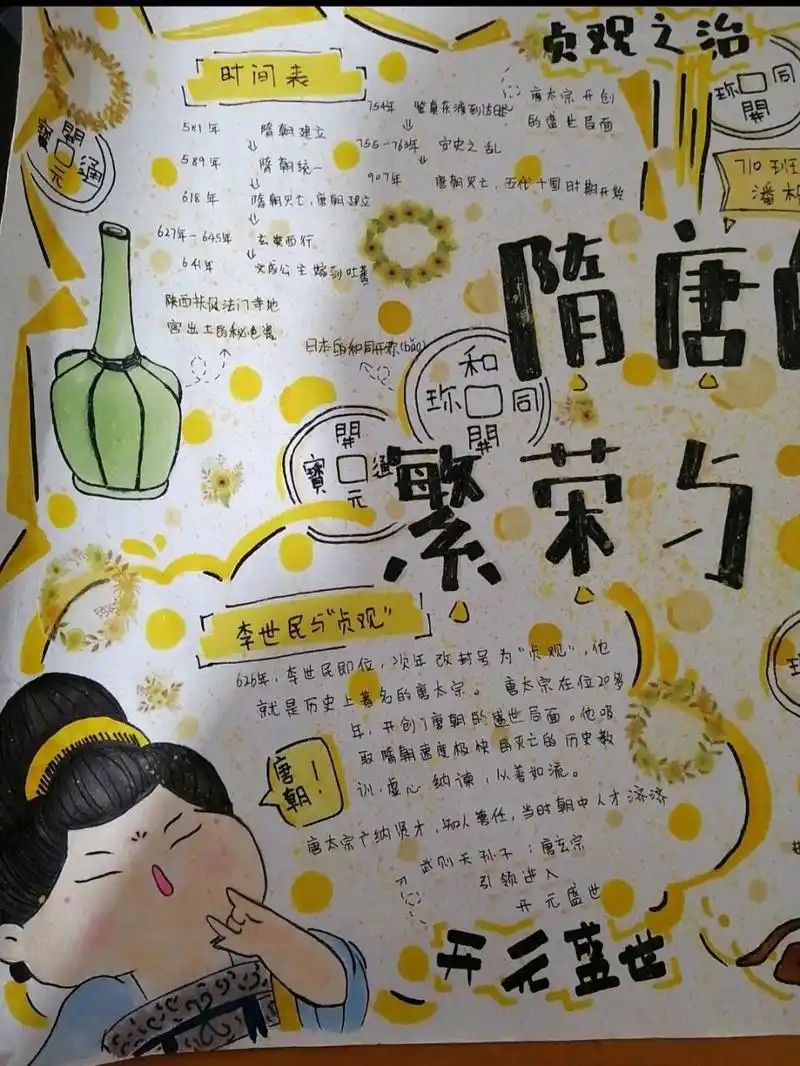 贞观之治
时间表
581年 隋朝建立
589年 隋朝统一
618年 隋朝灭亡,唐朝建立
627年-645年 玄奘西行
641年 文成公主嫁到吐蕃
754年 鉴真东渡到达日本
755-763年 安史之乱
907年 唐朝灭亡,五代十国时期开始
唐太宗开创
的盛世局面
開元通寳
和同開珎
710班
潘
陕西扶风法门寺地
宫出土的秘色瓷
日本的和同开珎(bǎo)
和同開珎
開元通寳
隋唐
繁荣与
李世民与"贞观"
626年,李世民即位,次年改封号为"贞观",他
就是历史上著名的唐太宗。唐太宗在位20多
年,开创了唐朝的盛世局面。他吸
取隋朝速度极快局灭亡的历史教
训,虚心纳谏,从善如流。
唐太宗广纳贤才,知人善任,当时朝中人才济济
唐朝!
武则天孙子:唐玄宗
引领进入
开元盛世
开元盛世